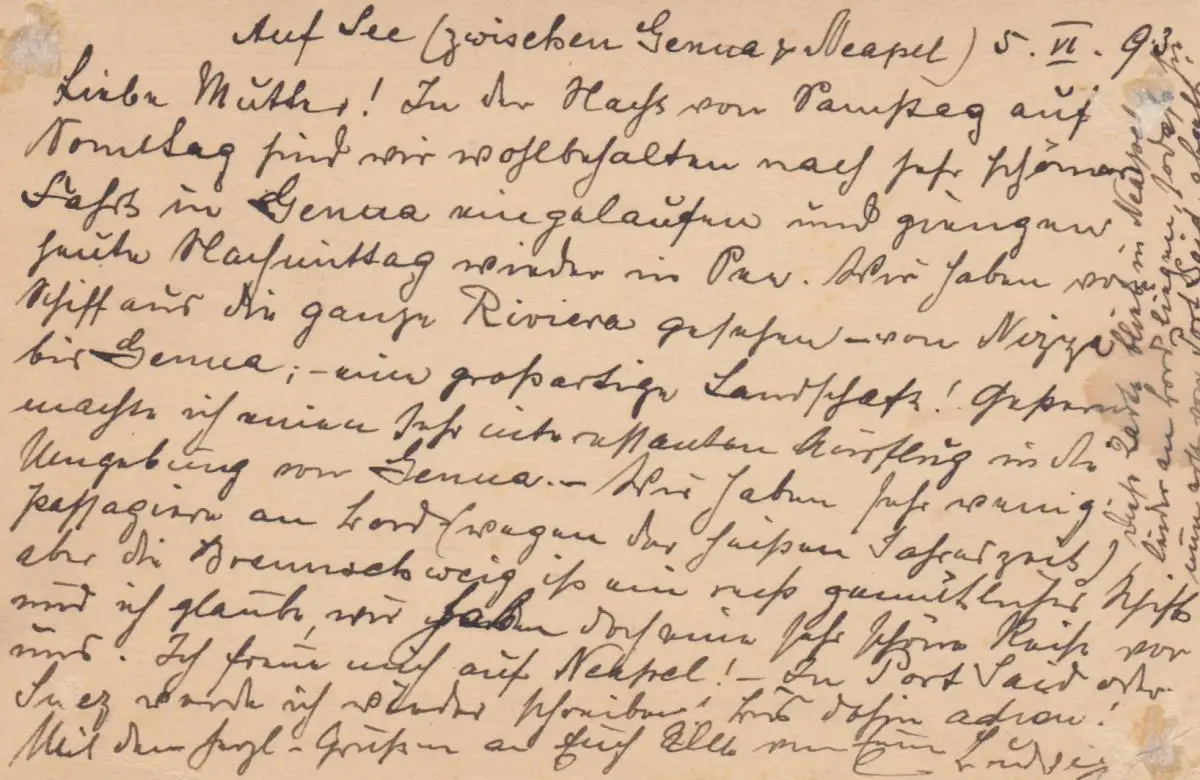 Auf See (zwischen Genua & Neapel) 5. VI. 93
Liebe Mutter! In der Nacht von Samstag auf
Sonntag sind wir wohlbehalten nach sehr schöner
Fahrt in Genua eingelaufen und giengen
heute Nachmittag wieder in See. Wir haben vom
Schiff aus die ganze Riviera gesehen – von Nizza
bis Genua; – eine großartige Landschaft! Gestern
machte ich einen sehr interessanten Ausflug in die
Umgebung von Genua. – Wir haben sehr wenig
Passagiere an Bord (wegen der heißen Jahreszeit)
aber die Braunschweig ist ein recht gemütliches Schiff
und ich glaube, wir haben doch eine sehr schöne Reise vor
uns. Ich freue mich auf Neapel! – In Port Said oder
Suez werde ich wieder schreiben! Bis dahin adieu!
Mit den herzl. Grüßen an Euch Alle von Ludwig
Diese Karte blieb in Neapel
leider an Bord liegen, sodaß sie
nun erst von Port Said